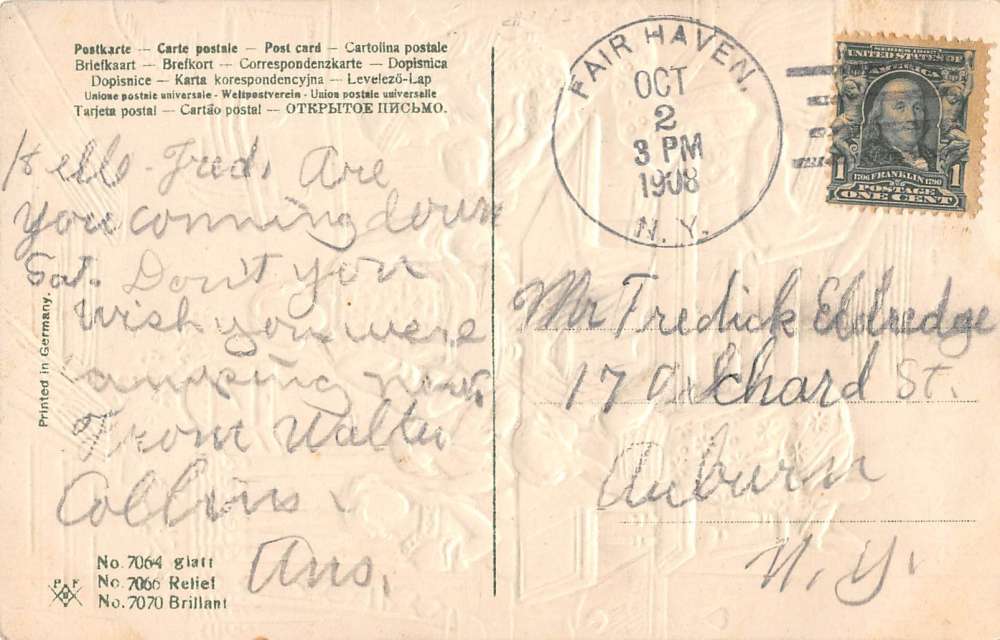 Postkarte — Carte postale — Post card — Cartolina postale
Briefkaart — Brefkort — Correspondenzkarte — Dopisnica
Dopisnice — Karta korespondencyjna — Levelező-Lap
Unione postale universale - Weltpostverein - Union postale universelle
Tarjeta postal — Cartão postal — ОТКРЫТОЕ ПИСЬМО.
Hello Fred. Are
you comming down
Sat. Don't you
wish you were
now
From Walter
Collins
Ans.
Printed in Germany.
P F
No. 7064 glatt
No. 7066 Relief
No. 7070 Brillant
FAIR HAVEN,
OCT
2
3 PM
1908
N. Y.
SERIES 1902
UNITED STATES OF
AMERICA
1706 FRANKLIN 1790
1 POSTAGE 1
ONE CENT
Mr Fredick Eldredge
17 Orchard St.
Auburn
N. Y.